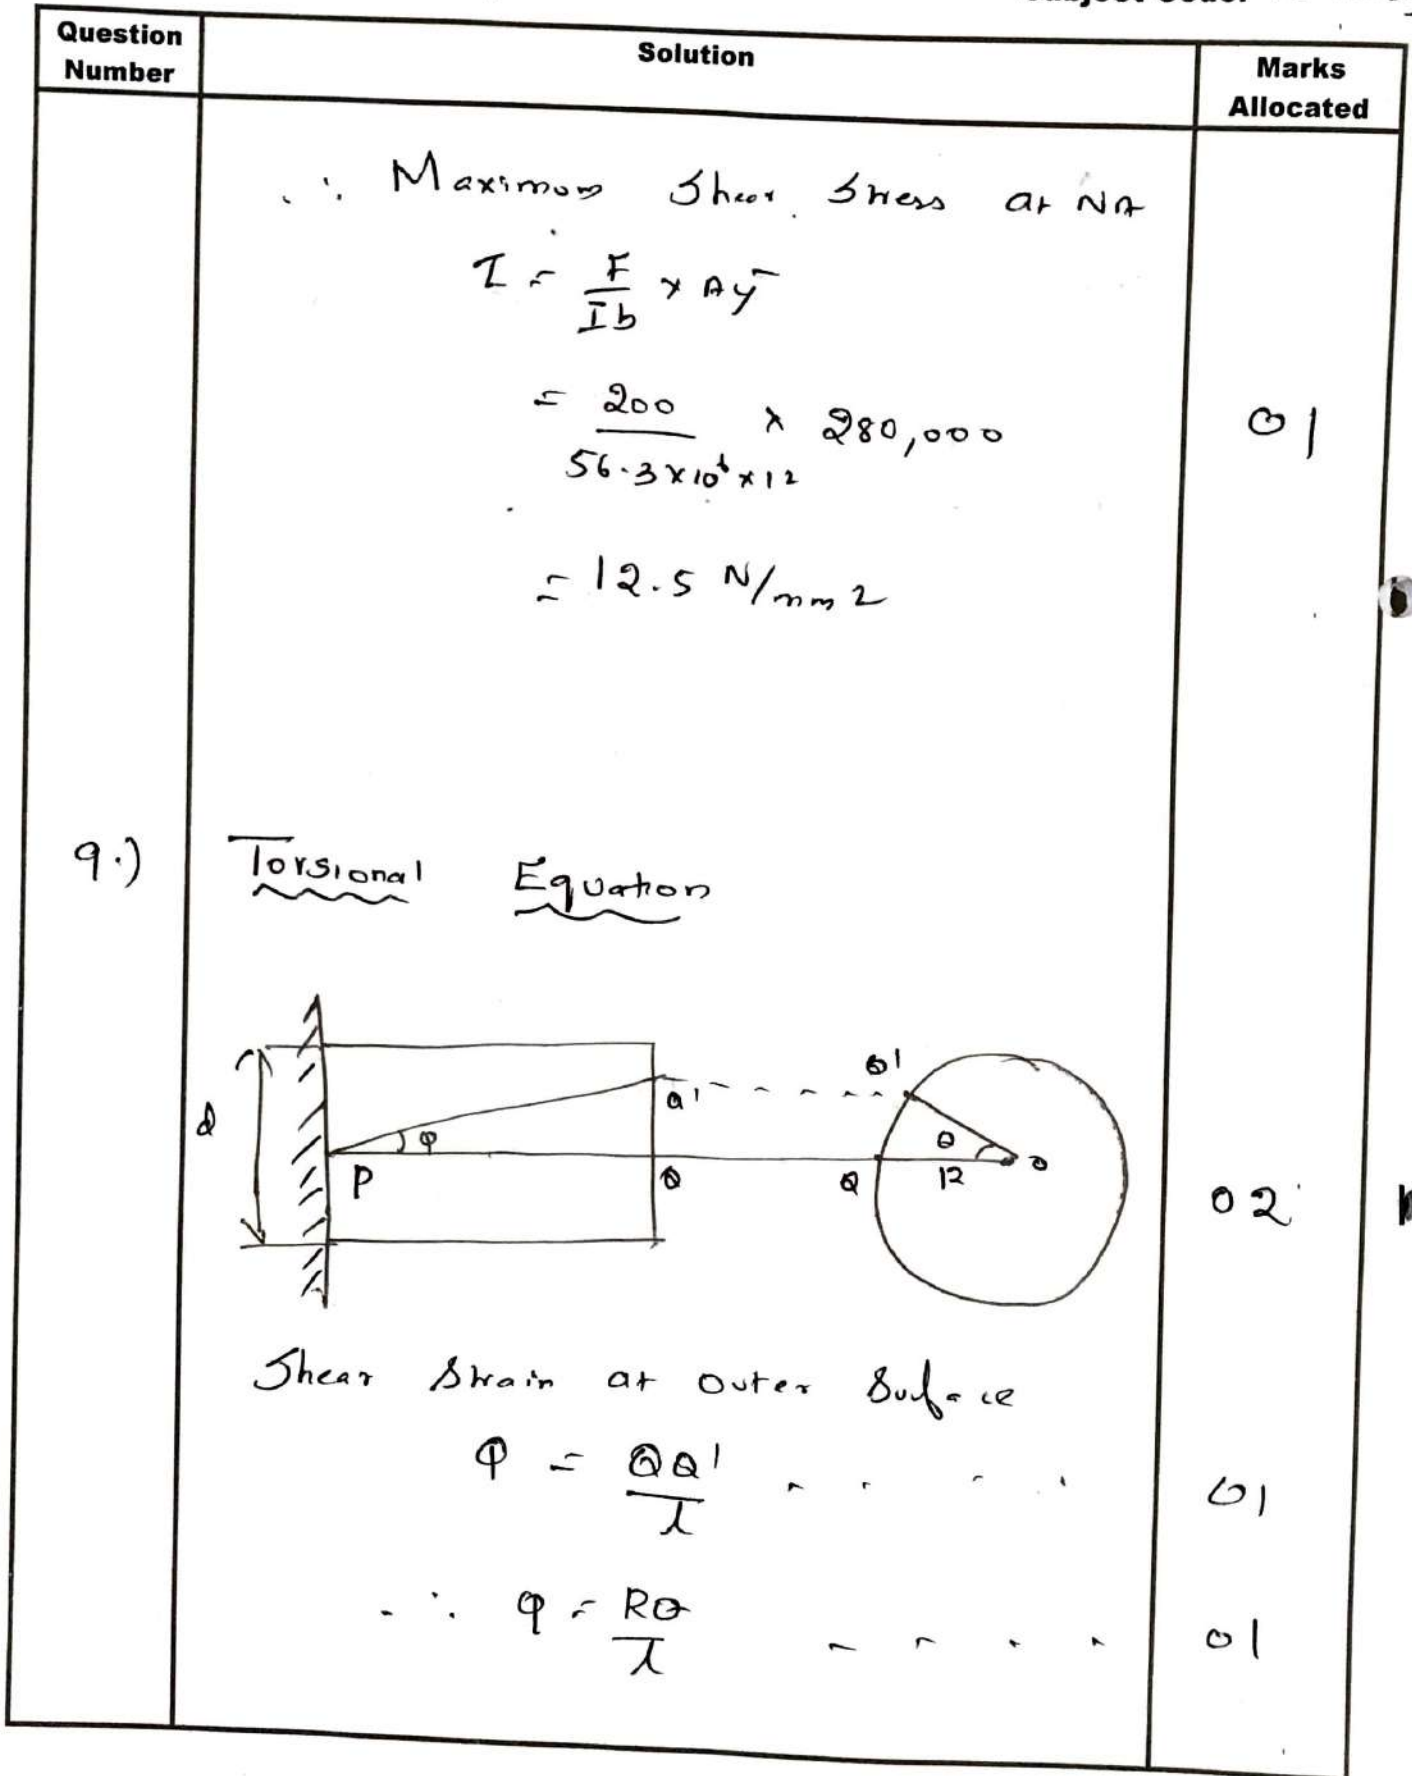 Question Number
Solution
Marks Allocated
∴ Maximum Shear Stress at NA
τ = F/Ib × Aȳ
= 200/56.3×10⁶×12 × 280,000
01
= 12.5 N/mm2
9.)
Torsional Equation
d
φ
P
Q'
Q
Q'
Q
θ
R
O
02
Shear Strain at Outer Surface
φ = QQ'/l
01
∴ φ = Rθ/l
01